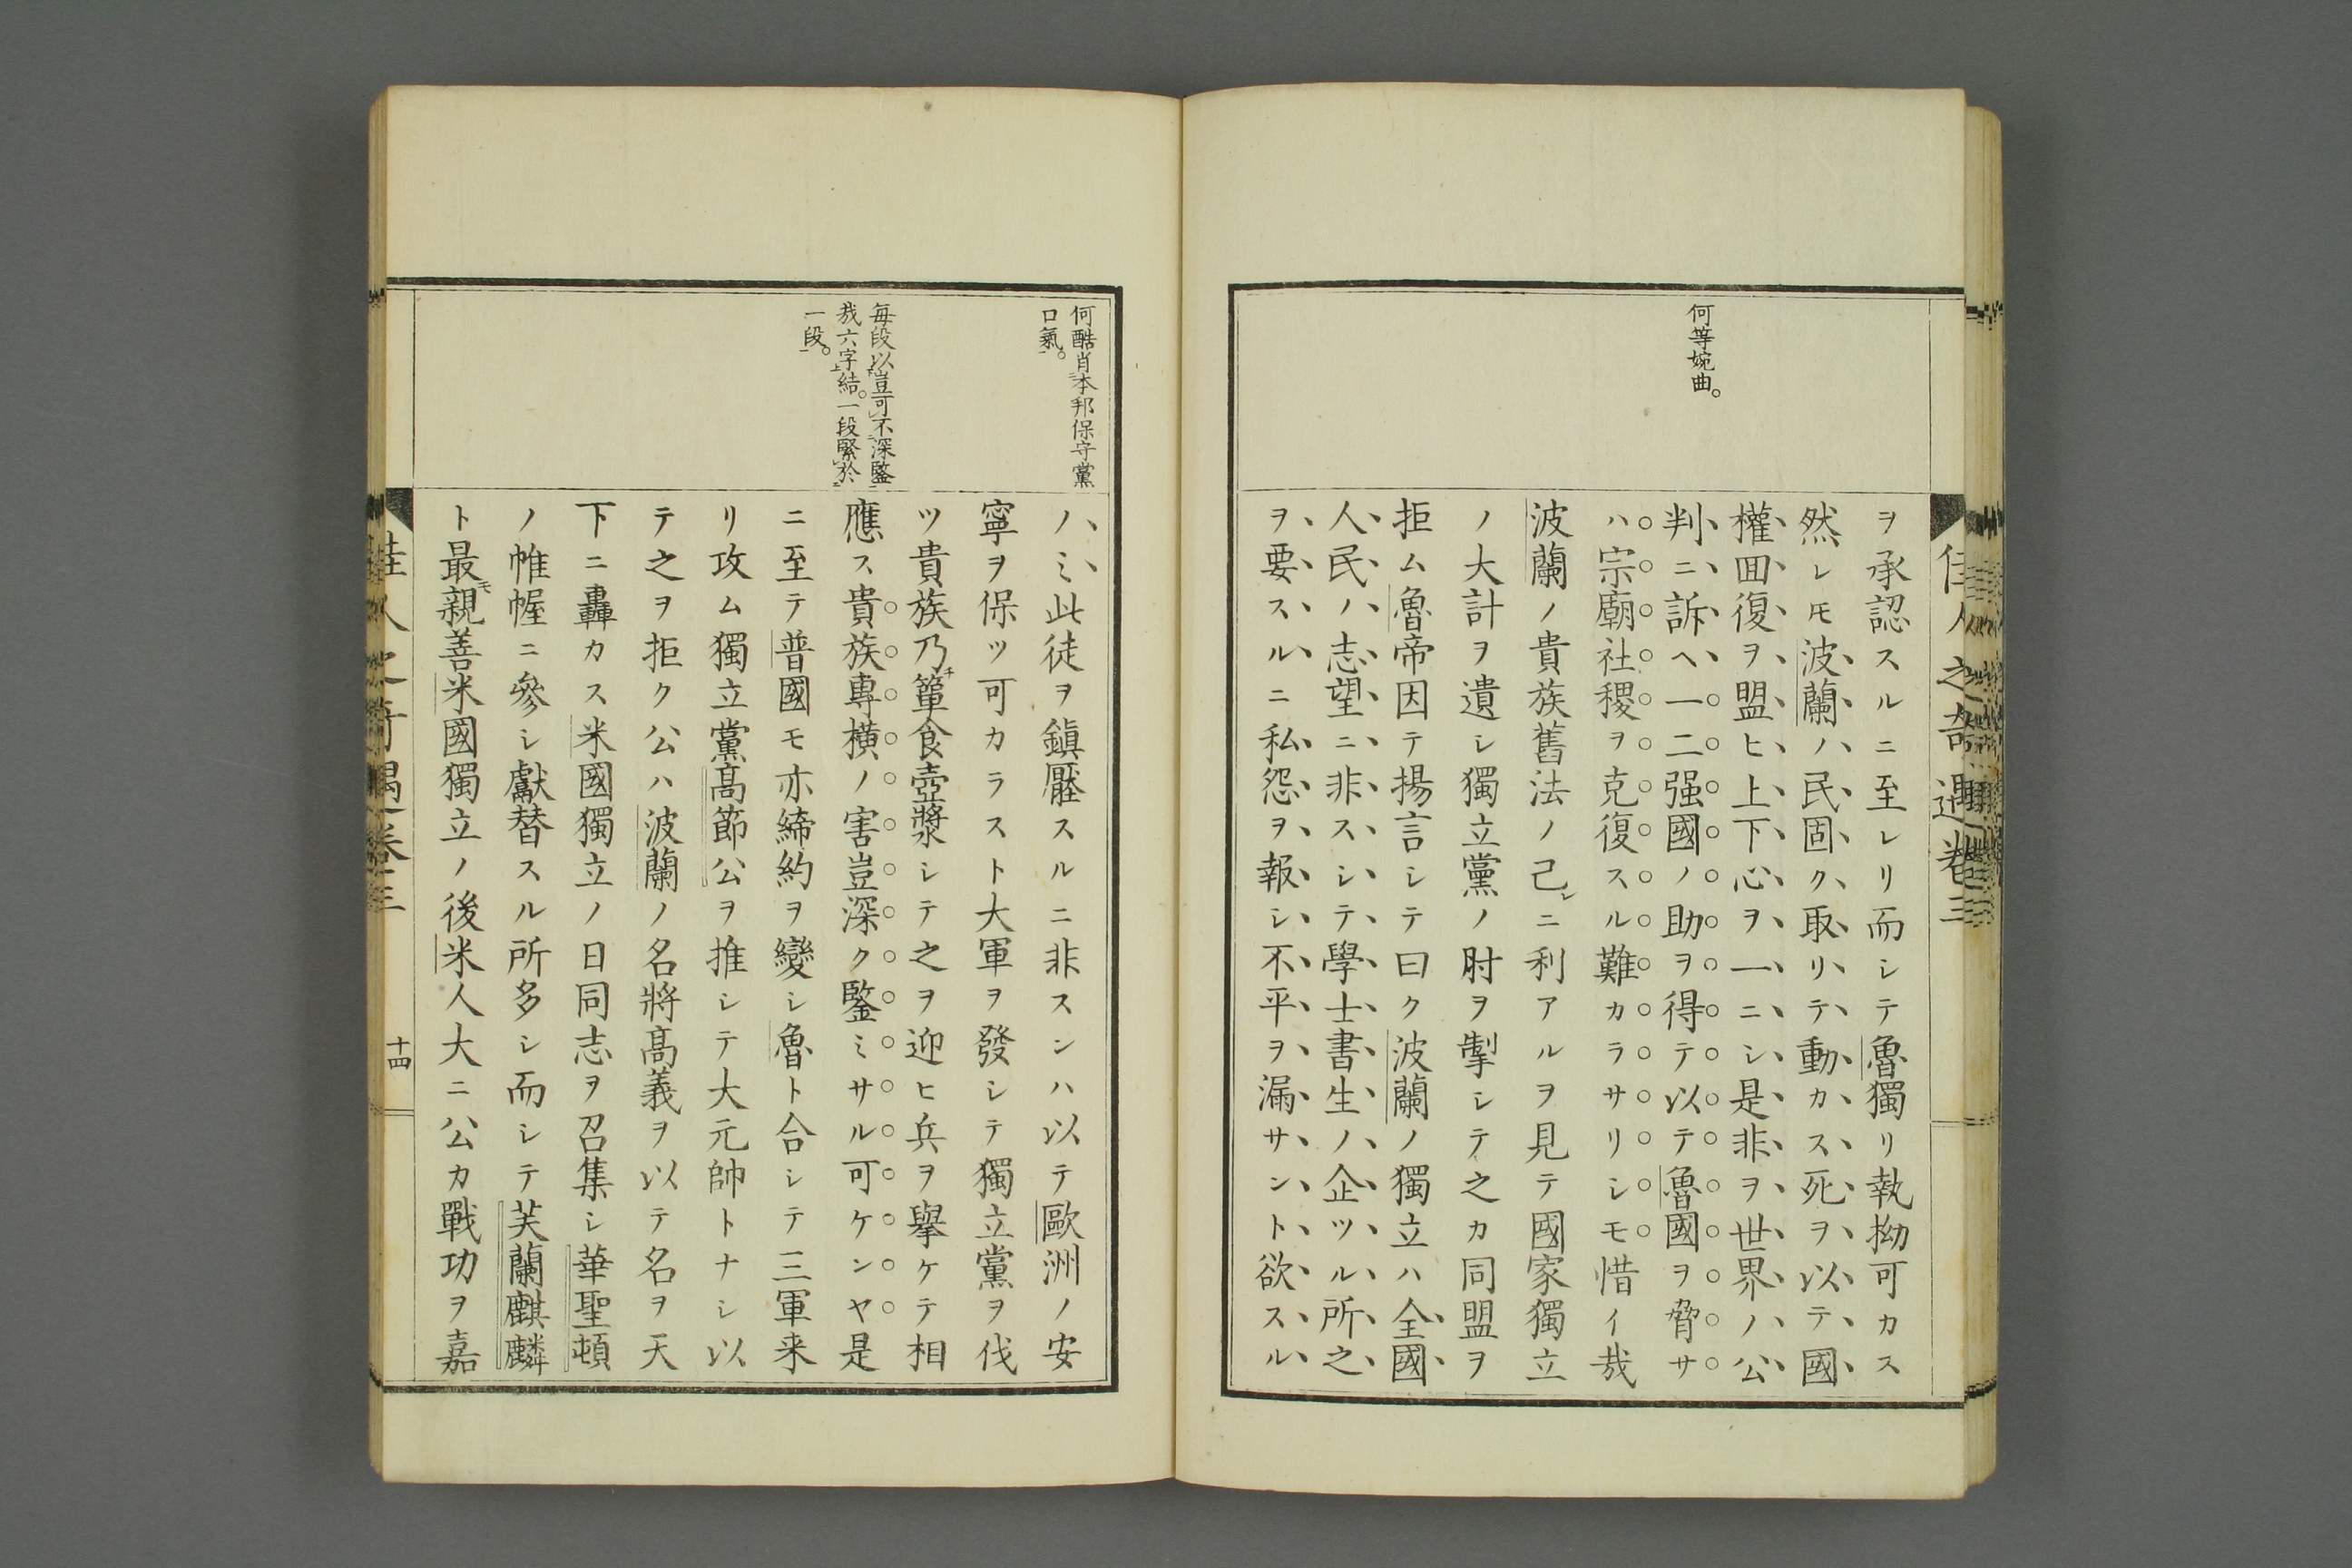 佳人之奇遇卷三
何等婉曲。
ヲ承認スルニ至レリ而シテ魯獨リ執拗可カス
然レ𪜈波蘭ノ民固ク取リテ動カス死ヲ以テ國
權回復ヲ盟ヒ上下心ヲ一ニシ是非ヲ世界ノ公
判ニ訴ヘ一二强國ノ助ヲ得テ以テ魯國ヲ脅サ
ハ宗廟社稷ヲ克復スル難カラサリシモ惜イ哉
波蘭ノ貴族舊法ノ己レニ利アルヲ見テ國家獨立
ノ大計ヲ遺レ獨立黨ノ肘ヲ掣シテ之カ同盟ヲ
拒ム魯帝因テ揚言シテ曰ク波蘭ノ獨立ハ全國
人民ノ志望ニ非スシテ學士書生ノ企ツル所之
ヲ要スルニ私怨ヲ報シ不平ヲ漏サント欲スル
何酷肖二本邦保守黨
口氣一。
每段以下豈可レ不二深鑒一
哉六字上結。一段緊二於
一段一。
ノミ此徒ヲ鎭壓スルニ非スンハ以テ歐洲ノ安
寧ヲ保ツ可カラスト大軍ヲ發シテ獨立黨ヲ伐
ツ貴族乃チ簞食壺漿シテ之ヲ迎ヒ兵ヲ擧ケテ相
應ス貴族專橫ノ害豈深ク鑒ミサル可ケンヤ是
ニ至テ普國モ亦締約ヲ變シ魯ト合シテ三軍来
リ攻ム獨立黨高節公ヲ推シテ大元帥トナシ以
テ之ヲ拒ク公ハ波蘭ノ名將高義ヲ以テ名ヲ天
下ニ轟カス米國獨立ノ日同志ヲ召集シ華聖頓
ノ帷幄ニ參シ獻替スル所多シ而シテ芙蘭麒麟
ト最モ親善米國獨立ノ後米人大ニ公カ戰功ヲ嘉
佳人之奇遇卷三
十四